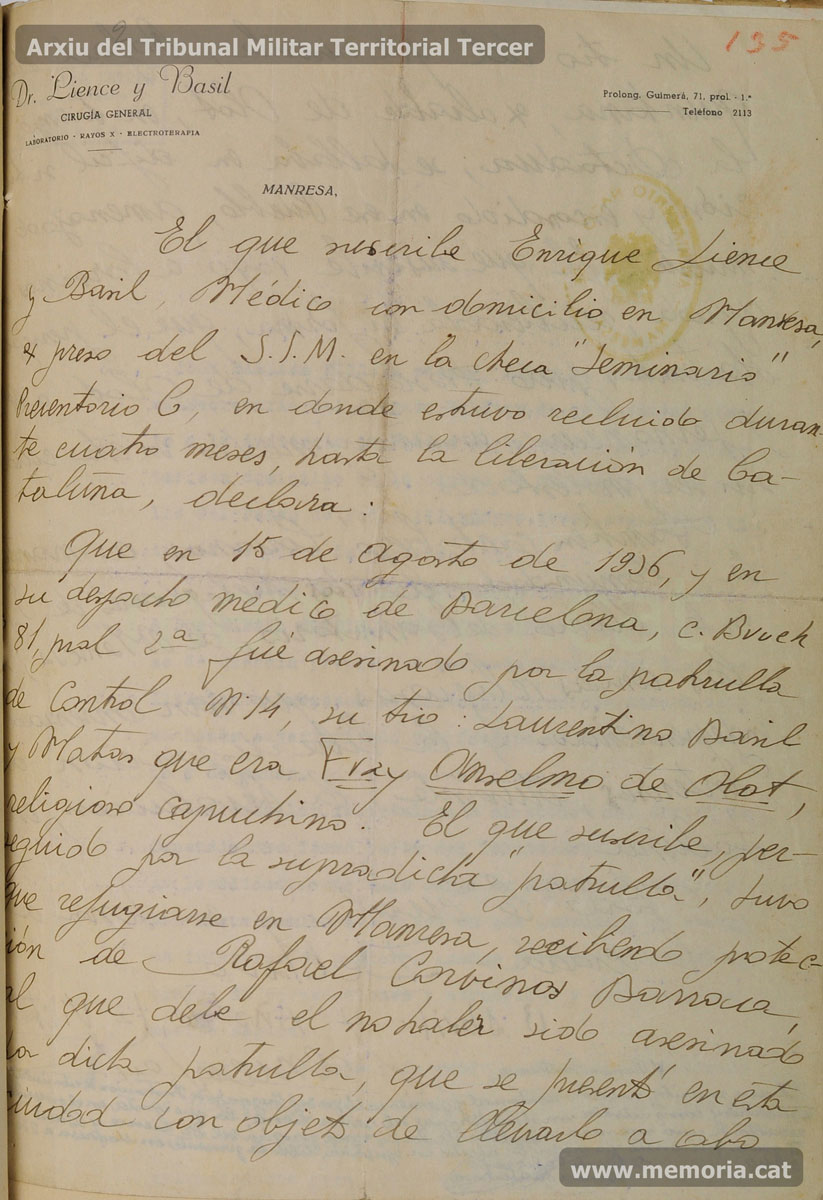 Arxiu del Tribunal Militar Territorial Tercer
135
Dr. Lience y Basil
CIRUGÍA GENERAL
LABORATORIO - RAYOS X - ELECTROTERAPIA
Prolong. Guimerá, 71, pral. - 1.ª
Teléfono 2113
MANRESA,
El que suscribe Enrique Lience
y Basil, Médico con domicilio en Manresa,
ex preso del S.I.M. en la checa "Seminario"
Preventorio C, en donde estuvo recluido duran-
te cuatro meses, hasta la liberación de Ca-
taluña, declara:
Que en 15 de Agosto de 1936, y en
su despacho médico de Barcelona, c. Bruch
81, pral 2ª fué asesinado por la patrulla
de Control Nº 14, su tio: Laurentino Basil
y Matas que era Fray Anselmo de Olot,
religioso capuchino. El que suscribe, per-
seguido por la supradicha "patrulla", tuvo
que refugiarse en Manresa, recibiendo protec-
ción de Rafael Corvinos Barraca,
al que debe el no haber sido asesinado
la dicha patrulla, que se presentó en esta
ciudad con objeto de llevarlo a cabo
www.memoria.cat